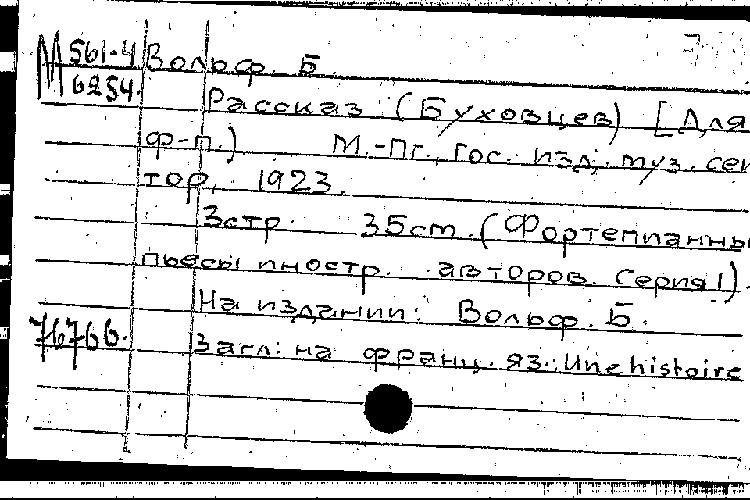 М 561-4 Вольф. Б
6254.
Рассказ (Буховцев) [Для
ф-п.) М.-Пг., Гос. изд. муз. сек
тор, 1923.
3стр. 35cm. (Фортепианны
пьесы иностр. авторов. Серия I).
На издании: Вольф. Б.
76766. Загл: на франц. яз.: Une histoire